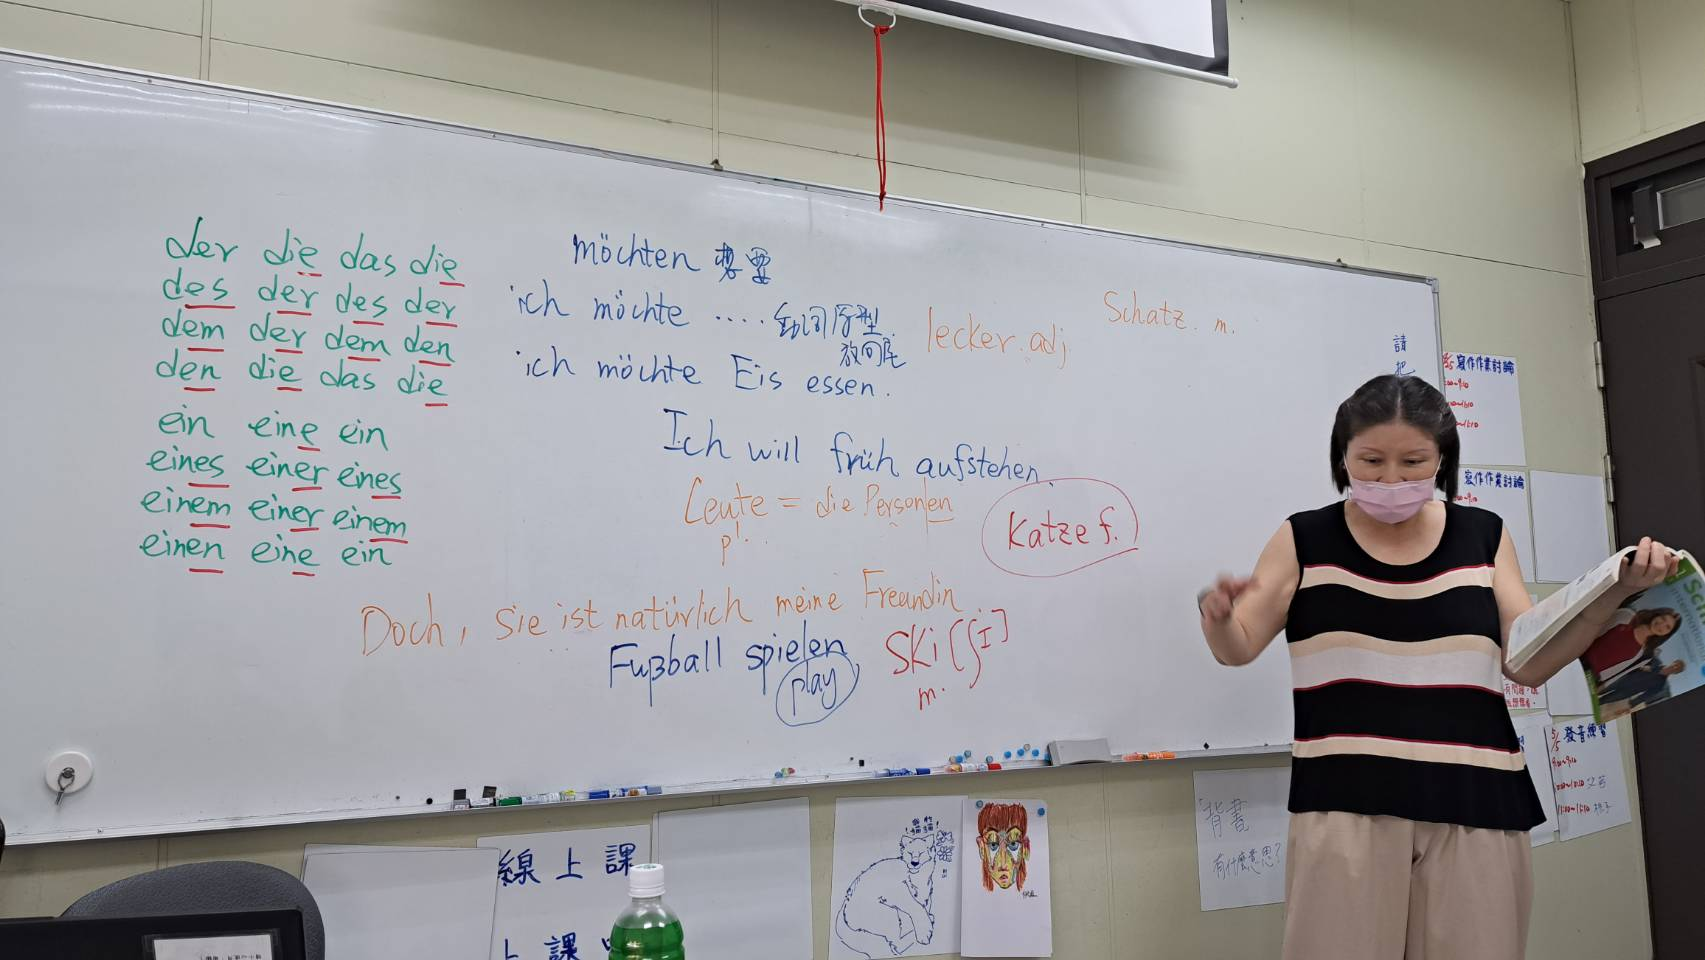 der die das die
des der des der
dem der dem den
den die das die
ein eine ein
eines einer eines
einem einer einem
einen eine ein
möchten 想要
ich möchte .... 動詞原型
放句尾
ich möchte Eis essen.
lecker.adj
Schatz. m.
Ich will früh aufstehen.
Leute = die Personen
pl..
Katze f.
Doch, sie ist natürlich meine Freundin
Fußball spielen
play
Ski [ʃI]
m.
請
把
寫作作業討論
寫作作業討論
5/5 發音練習
線上課
上課
背書
有什麼意思?